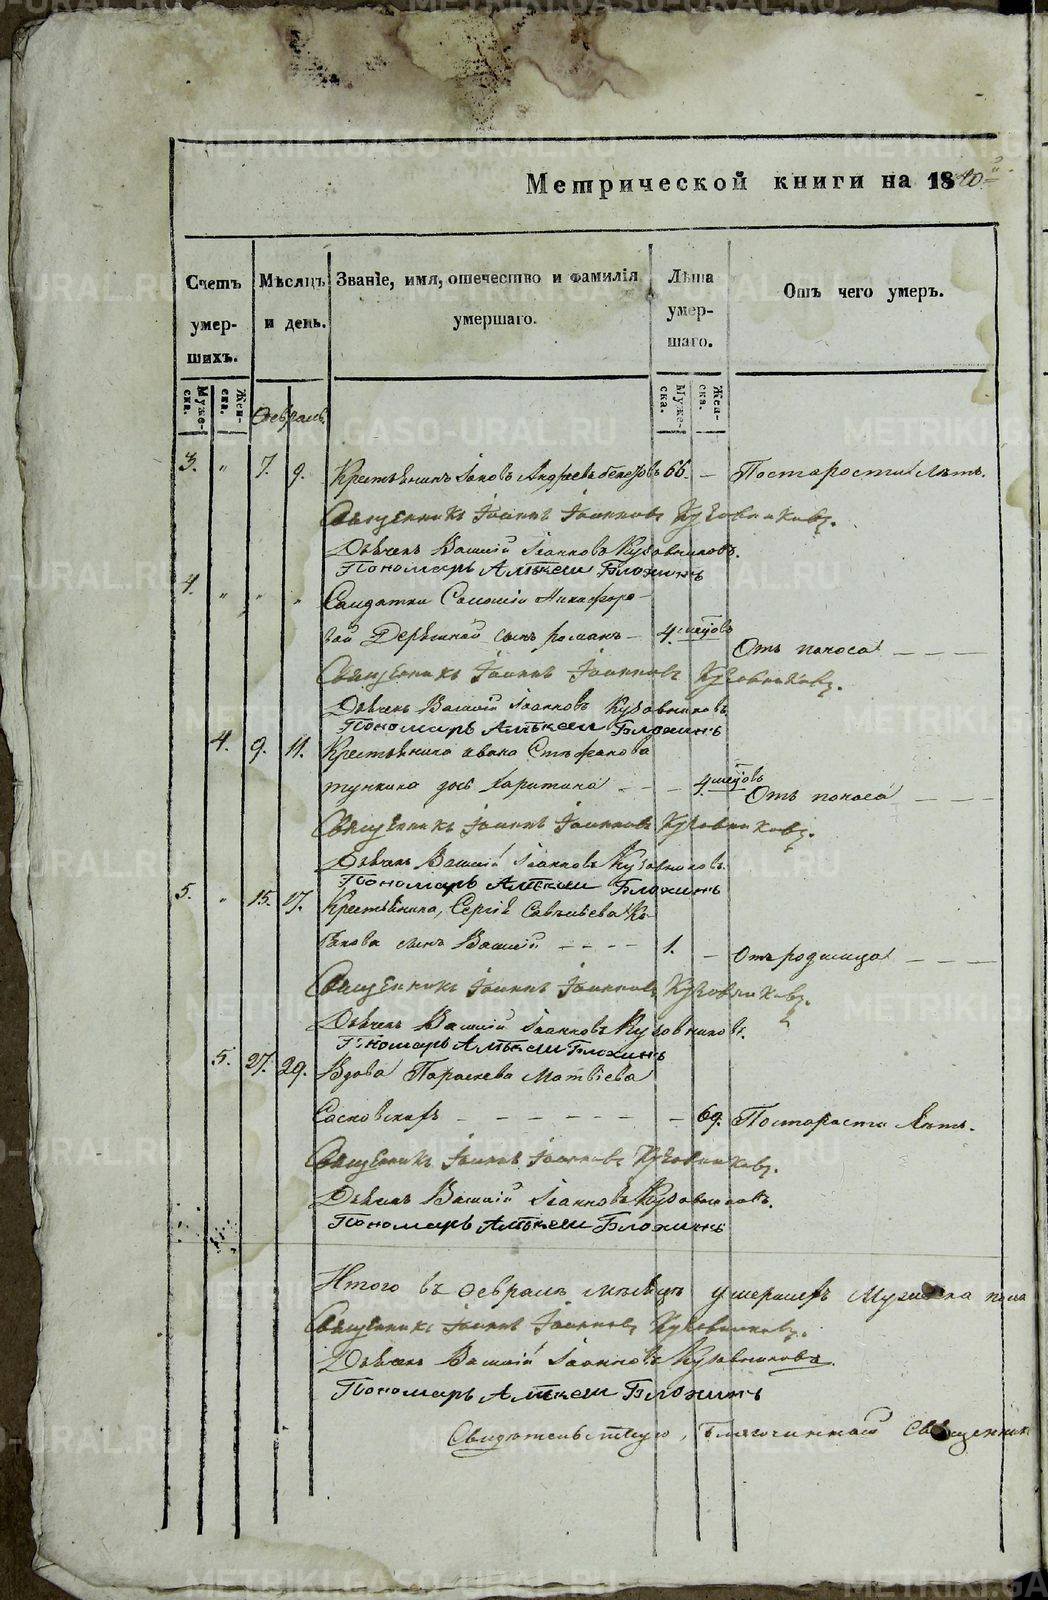 Метрической книги на 1840
Счетъ умер- шихъ.
Мѣсяцъ и день.
Званіе, имя, отечество и фамилія умершаго.
Лѣта умер- шаго.
Отъ чего умеръ.
Муже- ска. Жен- ска. Муже- ска. Жен- ска.
Февраль.
3. " 7. 9. Крестьянинъ Іаковъ Андреевъ 66. — По старости лѣтъ.
Священникъ Іоаннъ Іоанновъ Кузовниковъ.
Дьячекъ Василій Іоанновъ Кузовниковъ.
Пономарь Алѣксѣй Блохинъ
4. " " " Солдатки Соломіи Никифоро-
вой сынъ романъ — 4. мсцовъ Отъ поноса — — —
Священникъ Іоаннъ Іоанновъ Кузовниковъ.
Дьячекъ Василій Іоанновъ Кузовниковъ
Пономарь Алѣксѣй Блохинъ
4. 9. 11. Крестьянина ивана Стефанова
дочь Харитина — — — 4. мсцовъ Отъ поноса — — —
Священникъ Іоаннъ Іоанновъ Кузовниковъ.
Дьячекъ Василій Іоанновъ Кузовниковъ.
Пономарь Алѣксѣй Блохинъ
5. " 15. 17. Крестьянина, Сергія Савельева
сынъ Василій — — — — 1. — Отъ родимца — — —
Священникъ Іоаннъ Іоанновъ Кузовниковъ.
Дьячекъ Василій Іоанновъ Кузовниковъ.
Пономарь Алѣксѣй Блохинъ
5. 27. 29. Вдова Параскева Матвіева
Сосновскихъ — — — — — — — 69. По старости лѣтъ.
Священникъ Іоаннъ Іоанновъ Кузовниковъ.
Дьячекъ Василій Іоанновъ Кузовниковъ.
Пономарь Алѣксѣй Блохинъ
Итого въ Февралѣ мѣсяцѣ умершихъ Мужеска пола
Священникъ Іоаннъ Іоанновъ Кузовниковъ.
Дьячекъ Василій Іоанновъ Кузовниковъ.
Пономарь Алѣксѣй Блохинъ
Свидѣтельствую, благочинный Священник
METRIKI.GASO-URAL.RU